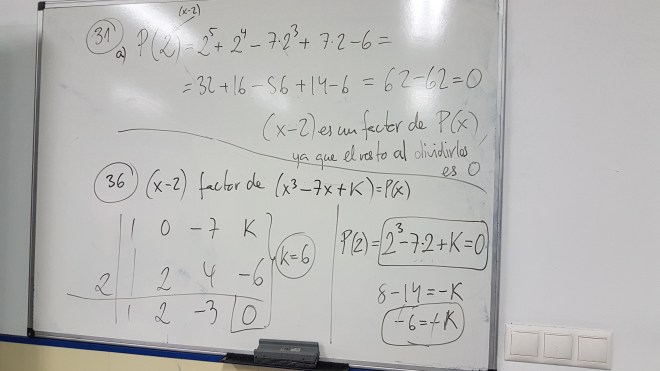 (x-2)
31 a) P(2)=2⁵+2⁴-7·2³+7·2-6=
=32+16-56+14-6 = 62-62=0
(x-2) es un factor de P(x)
ya que el resto al dividirlos
es 0
36 (x-2) factor de (x³-7x+K)=P(x)
1 0 -7 K
2 2 4 -6
1 2 -3 0
k=6
P(2)=2³-7·2+K=0
8-14=-K
-6=-K